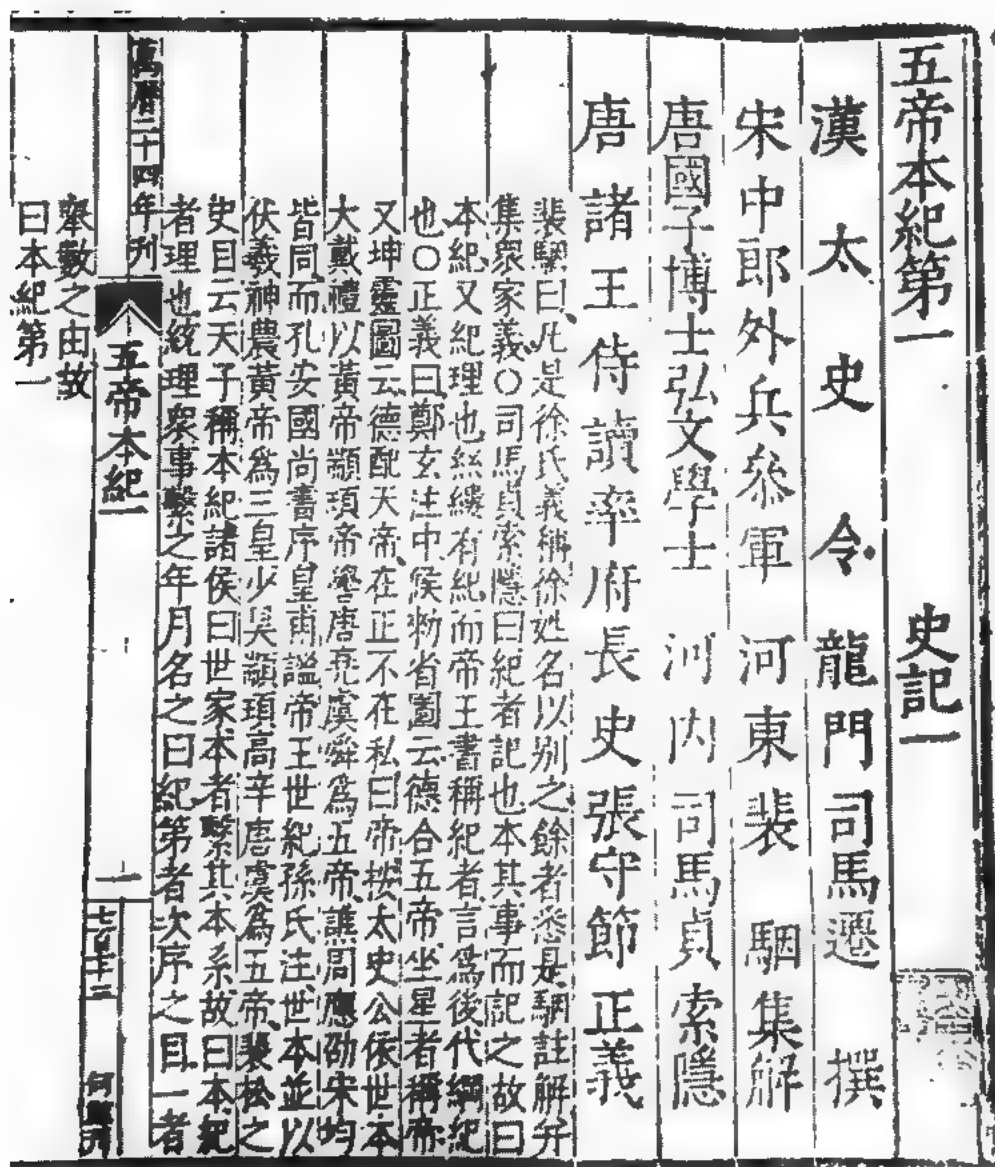 五帝本紀第一　史記一
漢太史令龍門司馬遷撰
宋中郎外兵參軍河東裴駰集解
唐國子博士弘文學士河內司馬貞索隱
唐諸王侍讀率府長史張守節正義
裴駰曰、凡是徐氏義稱徐姓名以别之餘者悉是駰註解并
集衆家義○司馬貞索隱曰紀者記也本其事而記之故曰
本紀、又紀理也絲縷有紀而帝王書稱紀者、言爲後代綱紀
也○正義曰、鄭玄注中候勑省圖云德合五帝坐星者稱帝
又坤靈圖云、德配天帝、在正不在私曰帝、按太史公依世本
大戴禮以黃帝顓頊帝嚳唐堯虞舜爲五帝、譙周應劭宋均
皆同、而孔安國尚書序皇甫謐帝王世紀孫氏注、世本並以
伏羲神農黃帝爲三皇少昊顓頊高辛唐虞爲五帝、裴松之
史目云天子稱本紀諸侯曰世家本者繫其本系、故曰本紀
者理也統理衆事繫之年月名之曰紀第者次序之目、一者
萬曆二十四年刊
五帝本紀一
一
舉數之由故
曰本紀第一